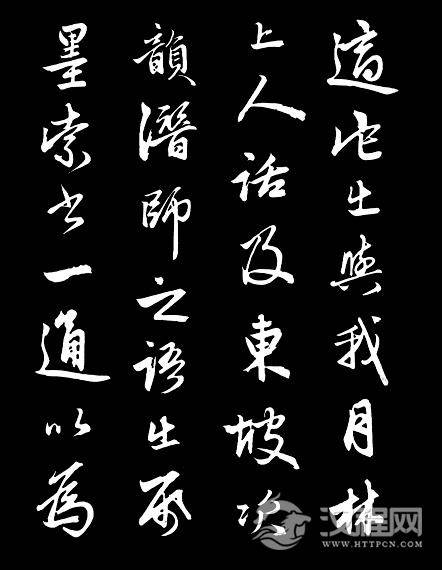 適佗出與我月林
上人話及東坡次
韻潛師之語出帋
墨索書一通以為
汉程网
WWW.HTTPCN.COM